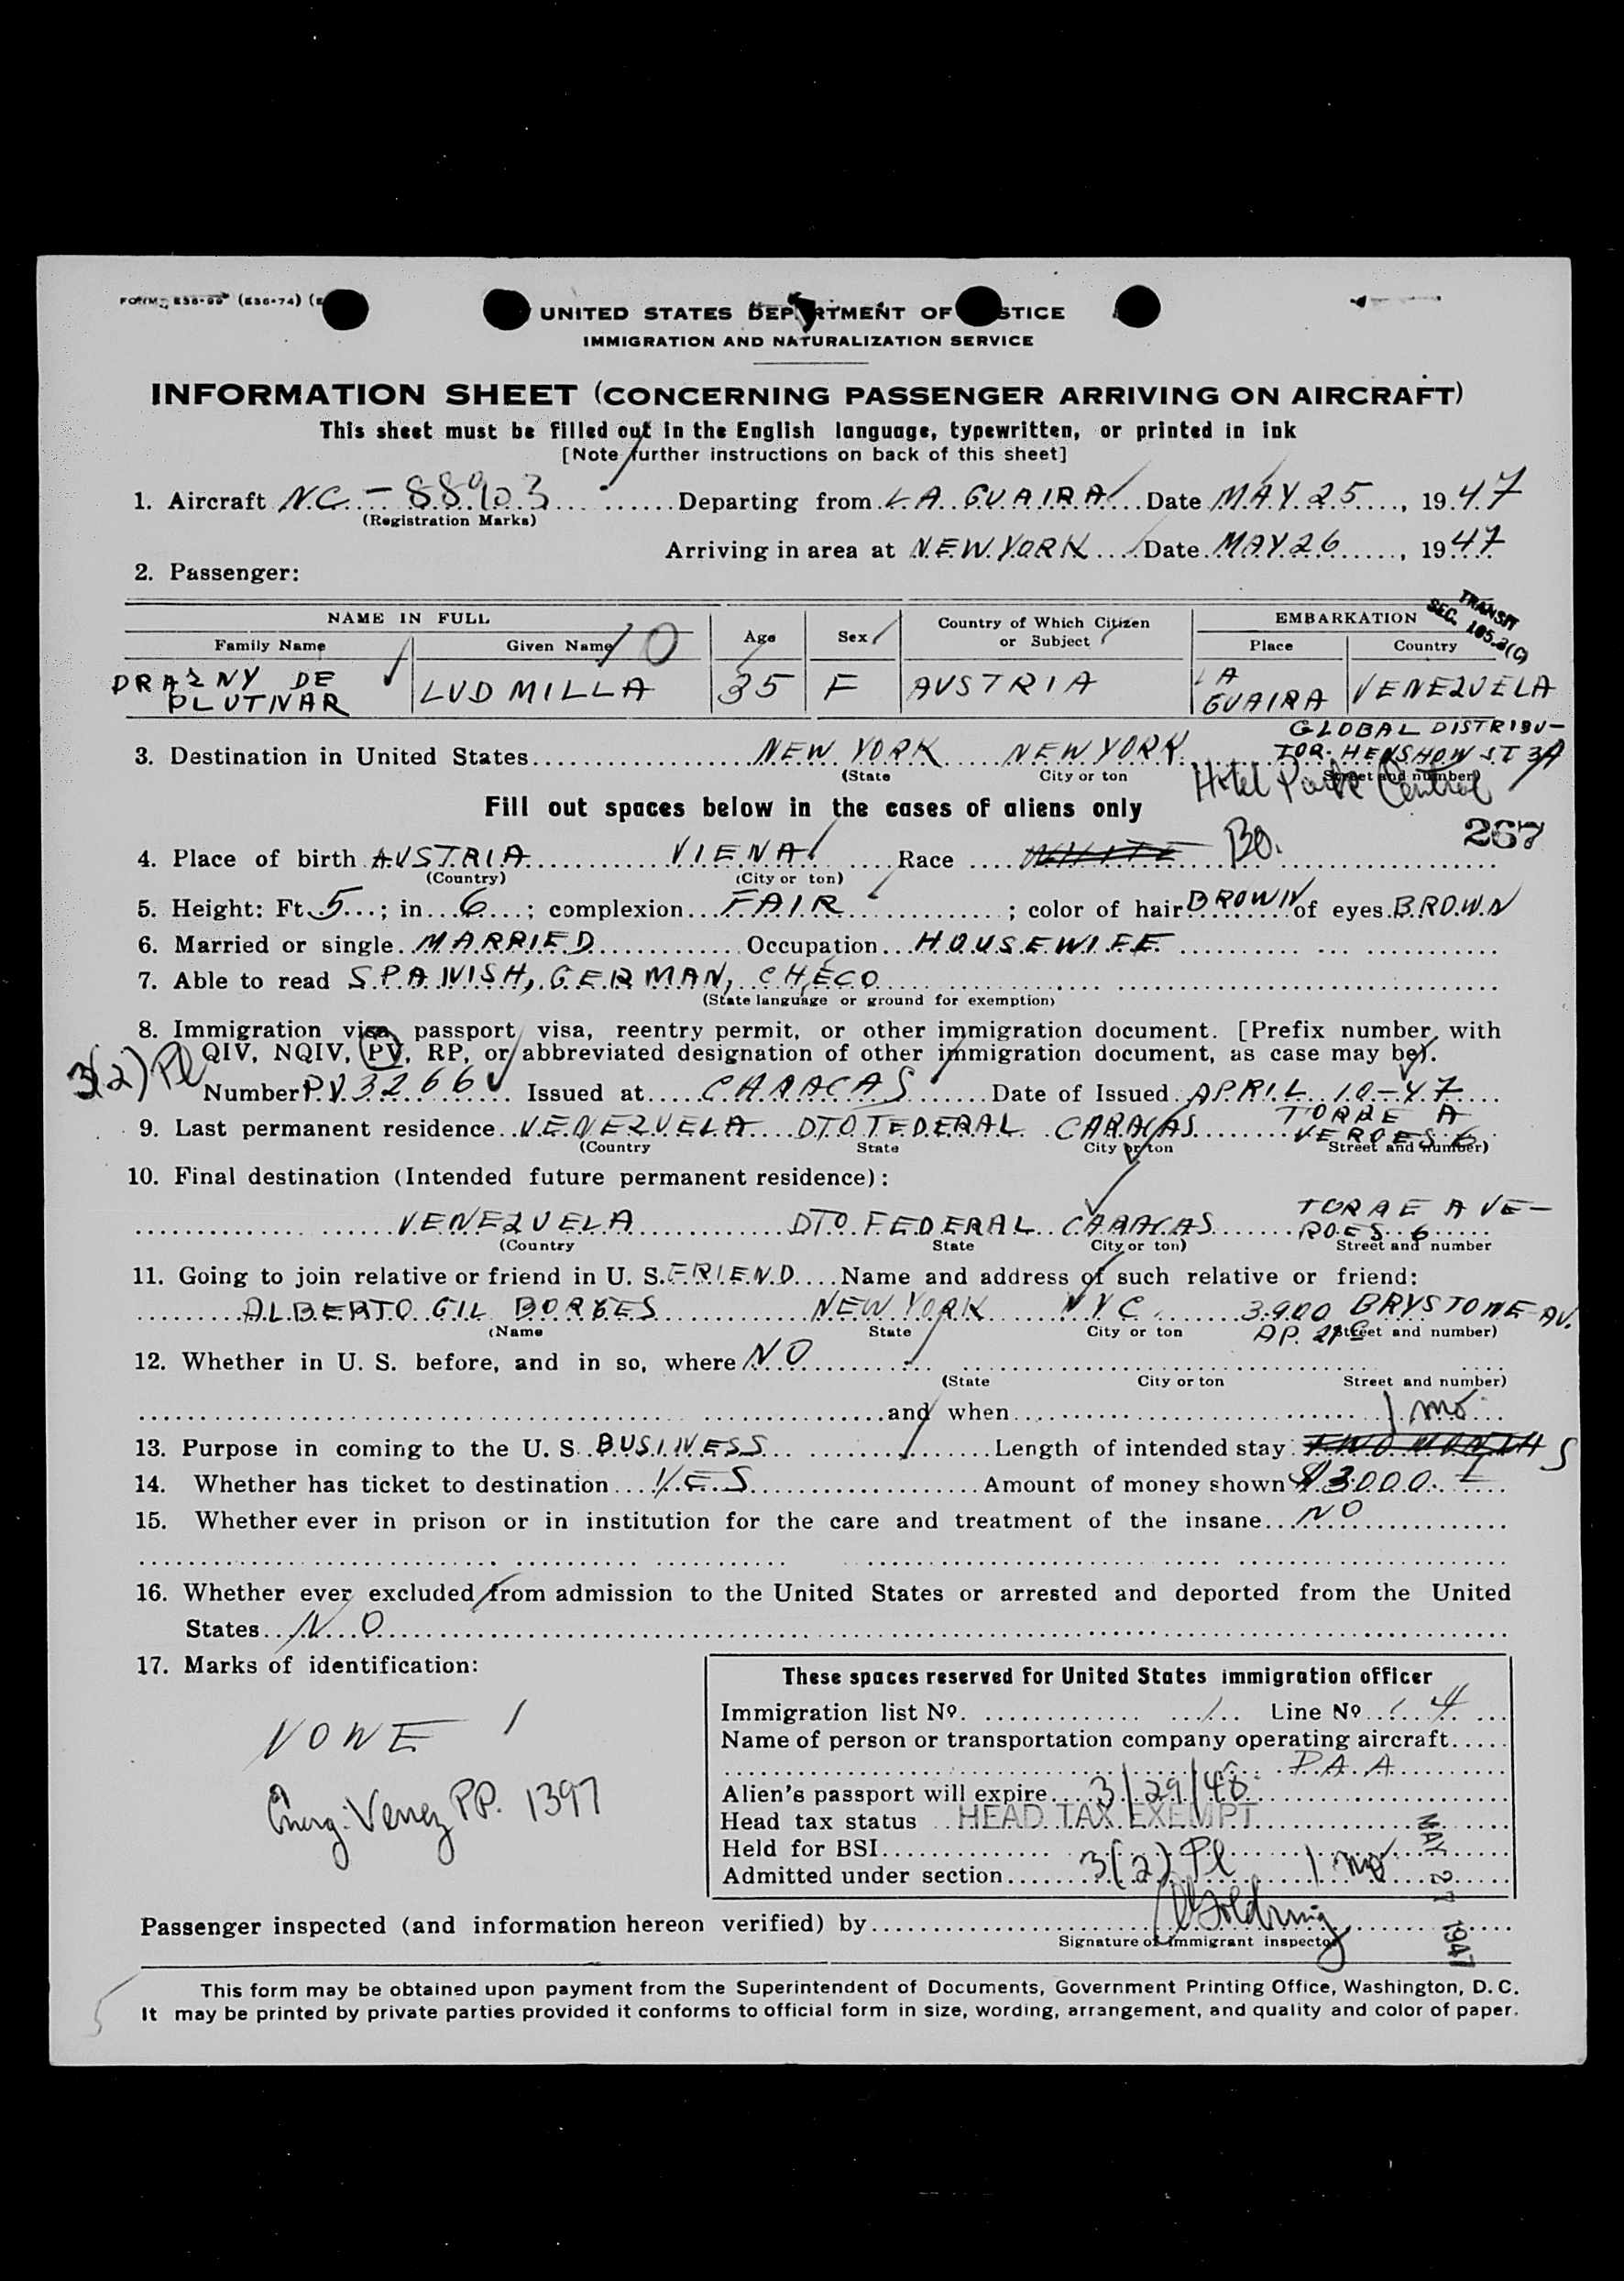 UNITED STATES DEPARTMENT OF JUSTICE
IMMIGRATION AND NATURALIZATION SERVICE
INFORMATION SHEET (CONCERNING PASSENGER ARRIVING ON AIRCRAFT)
This sheet must be filled out in the English language, typewritten, or printed in ink
[Note further instructions on back of this sheet]
1. Aircraft NC-88903 Departing from LA GUAIRA Date MAY 25, 1947
(Registration Marks)
Arriving in area at NEW YORK Date MAY 26, 1947
2. Passenger:
TRANSIT
SEC. 105.3(C)
NAME IN FULL Age Sex Country of Which Citizen or Subject EMBARKATION
Family Name Given Name 10 Place Country
DRAZNY DE LUDMILLA 35 F AUSTRIA LA VENEZUELA
PLUTNAR GUAIRA
GLOBAL DISTRIBU-
3. Destination in United States NEW YORK NEW YORK TOR. HENSHOW ST 3A
(State City or ton Street and number)
Hotel Park Central
Fill out spaces below in the cases of aliens only
267
4. Place of birth AUSTRIA VIENA Race WHITE Bo.
(Country) (City or ton)
5. Height: Ft. 5; in 6; complexion FAIR; color of hair BROWN of eyes BROWN
6. Married or single MARRIED Occupation HOUSEWIFE
7. Able to read SPANISH, GERMAN, CHECO
(State language or ground for exemption)
8. Immigration visa passport visa, reentry permit, or other immigration document. [Prefix number with
QIV, NQIV, PV, RP, or abbreviated designation of other immigration document, as case may be).
3(2) Pl
Number PV 3266 Issued at CARACAS Date of Issued APRIL 10-47
TORRE A
9. Last permanent residence VENEZUELA DTO FEDERAL CARACAS VEROES 6
(Country State City or ton Street and number)
10. Final destination (Intended future permanent residence):
TORRE A VE-
VENEZUELA DTO FEDERAL CARACAS ROES 6
(Country State City or ton) Street and number
11. Going to join relative or friend in U. S. FRIEND Name and address of such relative or friend:
ALBERTO GIL BORGES NEW YORK NYC 3.900 BRYSTONE AV.
(Name State City or ton Street and number)
AP.
12. Whether in U. S. before, and in so, where NO
(State City or ton Street and number)
and when
1 mo
13. Purpose in coming to the U. S. BUSINESS Length of intended stay: TWO MONTHS
14. Whether has ticket to destination YES Amount of money shown $ 3.000.
15. Whether ever in prison or in institution for the care and treatment of the insane NO
16. Whether ever excluded from admission to the United States or arrested and deported from the United
States NO
17. Marks of identification:
NONE
Venez PP. 1397
These spaces reserved for United States immigration officer
Immigration list No. Line No 4
Name of person or transportation company operating aircraft
P.A.A.
Alien's passport will expire 3/29/48
Head tax status HEAD TAX EXEMPT
Held for BSI
Admitted under section 3(2) Pl 1 mo
MAY 27 1947
Passenger inspected (and information hereon verified) by
Signature of immigrant inspector
This form may be obtained upon payment from the Superintendent of Documents, Government Printing Office, Washington, D. C.
It may be printed by private parties provided it conforms to official form in size, wording, arrangement, and quality and color of paper.